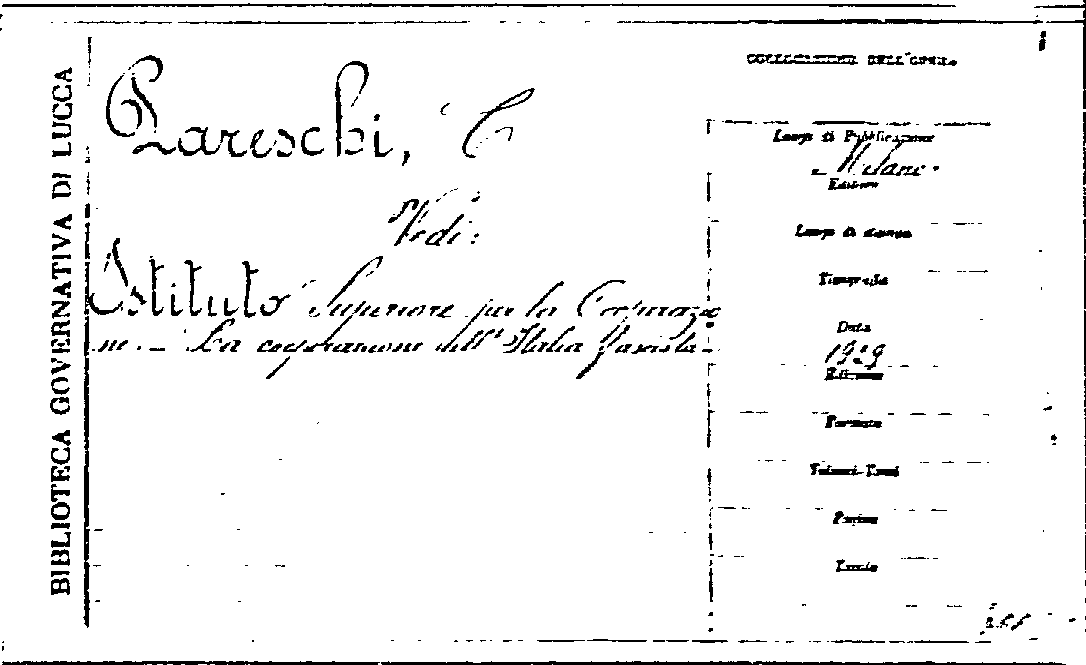 BIBLIOTECA GOVERNATIVA DI LUCCA
Pareschi, C
Vedi:
Istituto Superiore per la Corporazio
ne. - La cooperazione dell'Italia Fascista -
COLLOCAZIONE DELL'OPERA
Luogo di Pubblicazione
- Milano -
Editore
Luogo di stampa
Tipografia
Data
1929
Edizione
Formato
Volumi-Tomi
Pagine